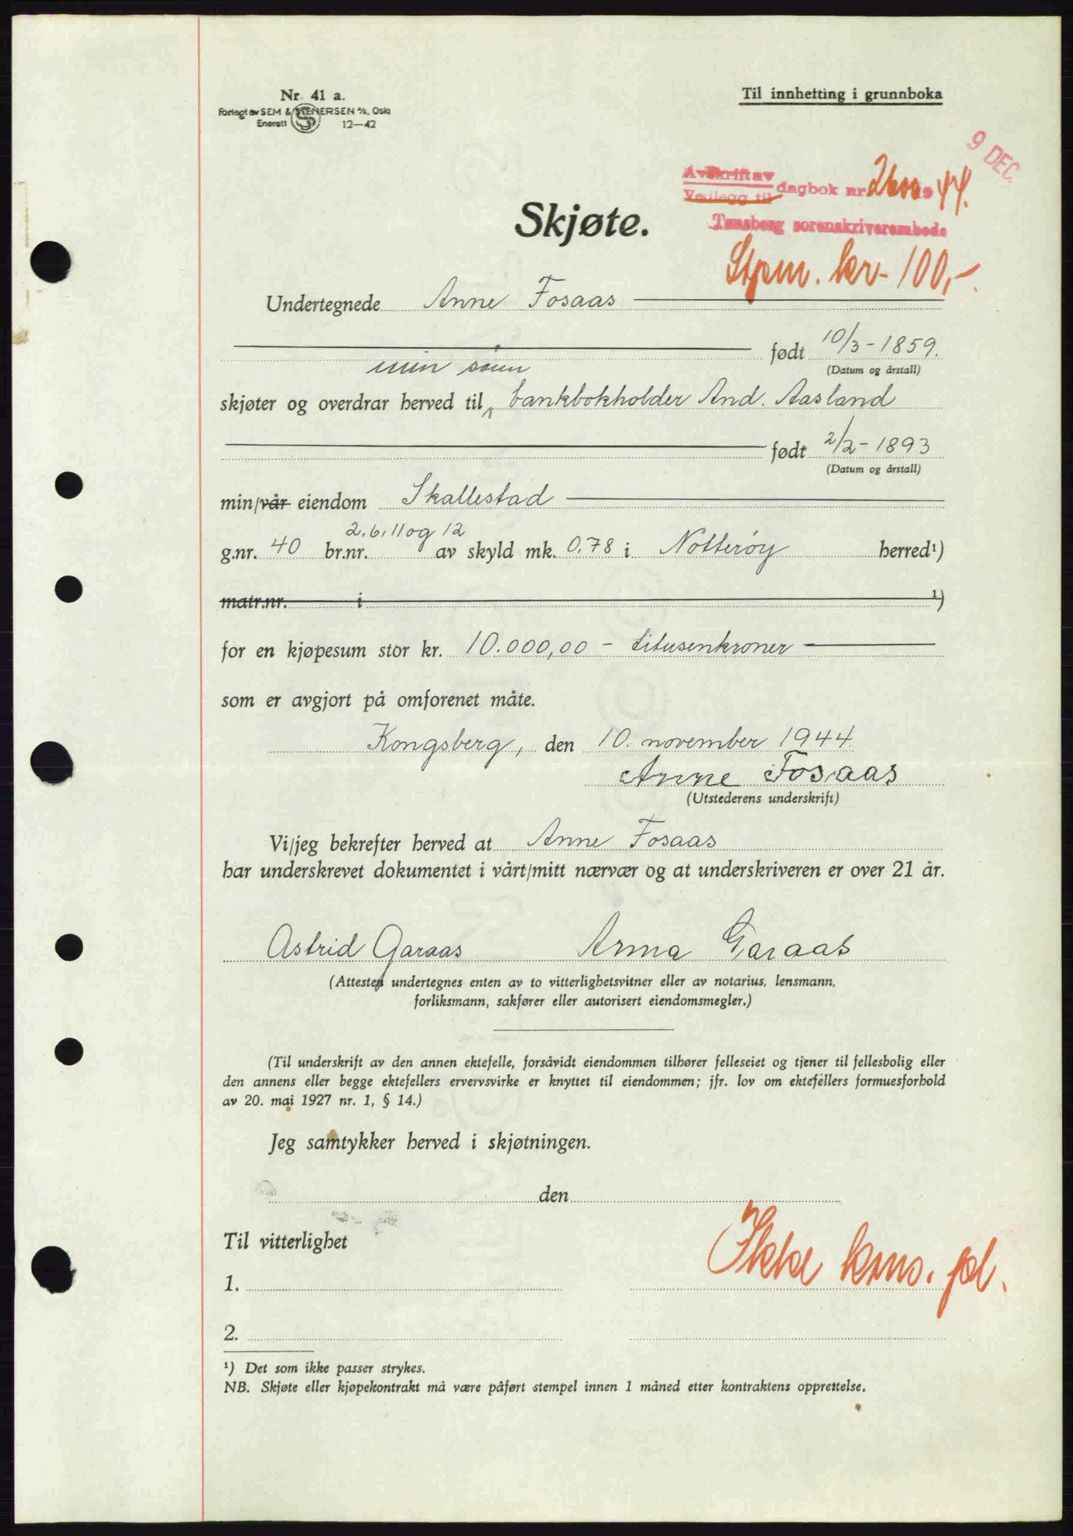 Nr. 41 a.
Forlagt av SEM & STENERSEN A/S, Oslo
Enerett 12—42
Til innhetting i grunnboka
9 DEC.
Avskrift av
Vedlegg til
dagbok nr. 19 44.
Tønsberg sorenskriverembede
Stpm. kr. 100,-
Skjøte.
Undertegnede Anne Fosaas
født 10/3 - 1859.
(Datum og årstall)
min sønn
skjøter og overdrar herved til bankbokholder And. Aasland
født 2/2 - 1893
(Datum og årstall)
min/vår eiendom Skallestad
g.nr. 40 br.nr. 2, 6, 11 og 12 av skyld mk. 0.78 i Nøtterøy herred¹)
matr.nr. i ¹)
for en kjøpesum stor kr. 10.000,00 - titusenkroner
som er avgjort på omforenet måte.
Kongsberg, den 10. november 1944.
Anne Fosaas
(Utstederens underskrift)
Vi/jeg bekrefter herved at Anne Fosaas
har underskrevet dokumentet i vårt/mitt nærvær og at underskriveren er over 21 år.
Astrid Garaas Anna Garaas
(Attesten undertegnes enten av to vitterlighetsvitner eller av notarius, lensmann,
forliksmann, sakfører eller autorisert eiendomsmegler.)
(Til underskrift av den annen ektefelle, forsåvidt eiendommen tilhører felleseiet og tjener til fellesbolig eller
den annens eller begge ektefellers ervervsvirke er knyttet til eiendommen; jfr. lov om ektefellers formuesforhold
av 20. mai 1927 nr. 1, § 14.)
Jeg samtykker herved i skjøtningen.
den
Til vitterlighet
Ikke kons. pl.
1.
2.
¹) Det som ikke passer strykes.
NB. Skjøte eller kjøpekontrakt må være påført stempel innen 1 måned etter kontraktens opprettelse.